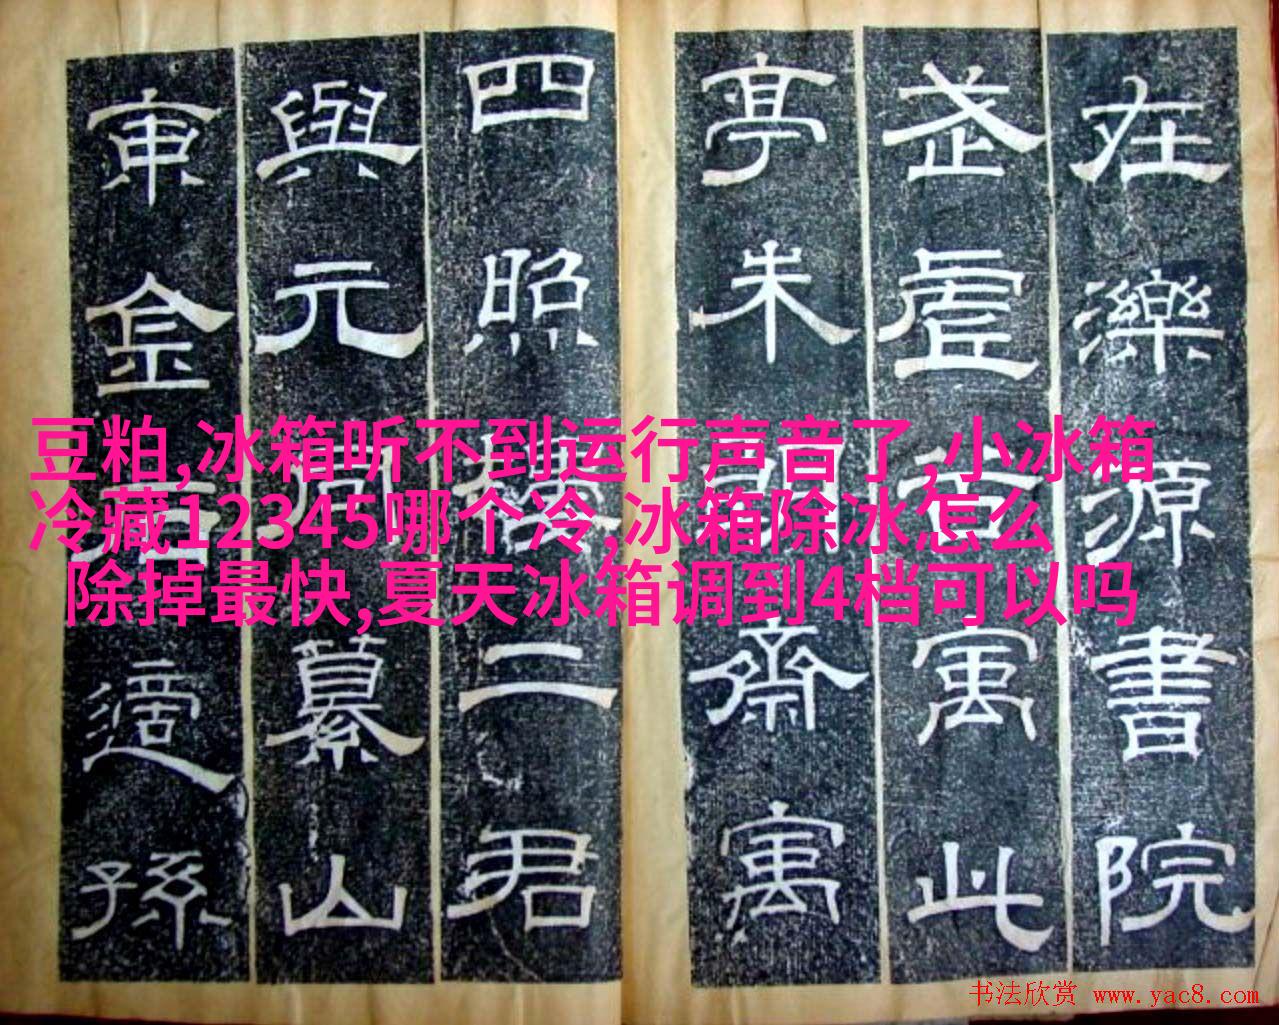 在濼源書院
武虚谷寓此
亭朱朗齋寓
四照樓二君
與元同纂山
東金石適孫
豆粕,冰箱听不到运行声音了,小冰箱
冷藏12345哪个冷,冰箱除冰怎么
除掉最快,夏天冰箱调到4档可以吗
书法欣赏 www.yac8.com